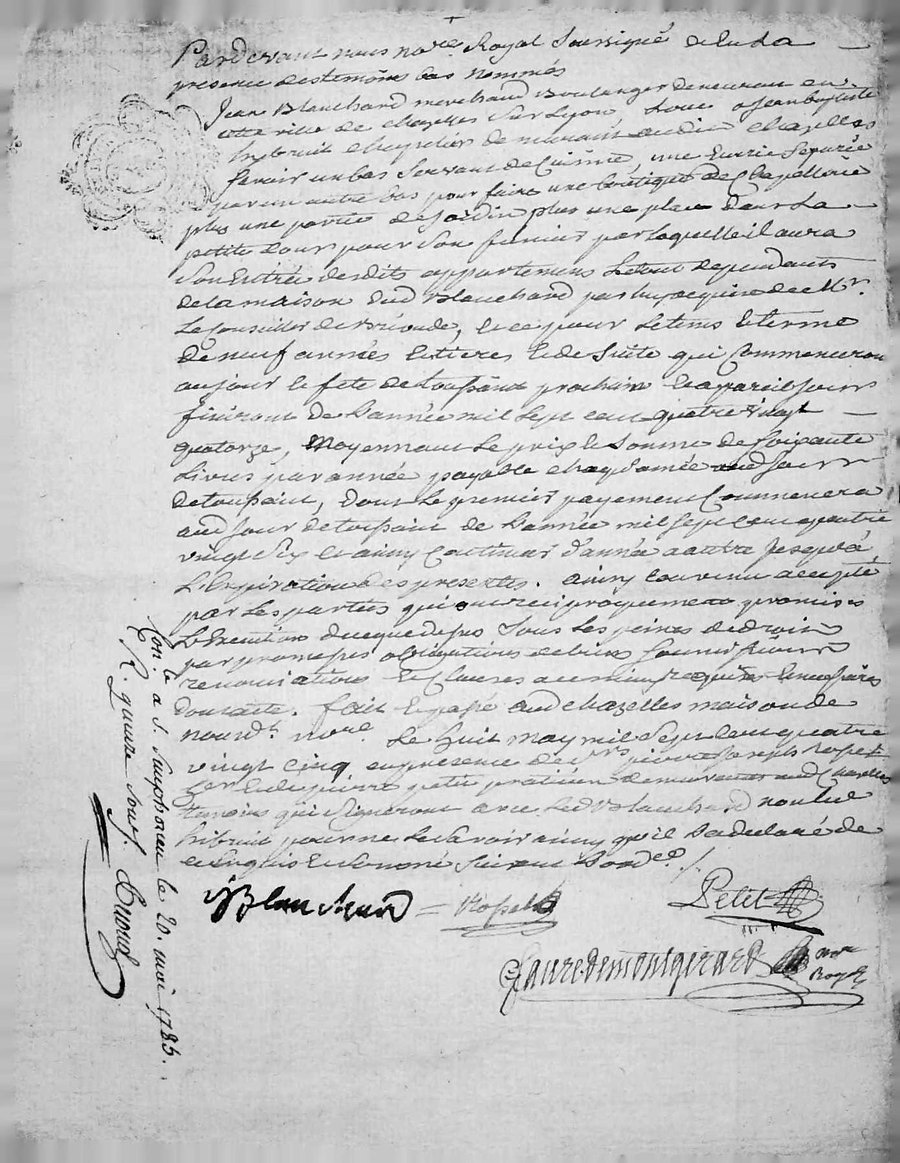 Pardevant nous no.re Royal Soussigné Et en La
presence des temoins bas nommés
Jean Blanchard marchand Boulanger demeurant en
cette ville de chazelles Sur Lyon, Loue a Jean baptiste
chapelier de audit chazelles
Savoir un bas Servant de Cuisine, une Ecurie Separée
par un autre bas pour faire une boutique de Chapellerie
plus une partie de jardin plus une place dans La
petite Cour pour Son fumier par laquelle il aura
Son Entrée desdits appartements Le tout dependants
de la maison dud Blanchard par luy acquise de Mr.
Le Conseiller de, Et ce pour Le tems Et terme
De neuf années Entieres Et de Suite qui Commenceront
au jour Et fete de toussaint prochain Et a pareil jour
finiront de L'année mil Sept cent quatre vingt
quatorze, Moyennant Le prix Et Somme de Soixante
Livres par année payable chaque année aud Jour
de toussaint, Dont Le premier payement Commencera
aud Jour de toussaint de L'année mil Sept cent quatre
vingt Six Et ainsy Continuer d'année a autre Jusqu'a
L'Expiration des presentes. ainsy Convenu accepté
par Les parties qui ont reciproquement promis
L'Execution de ce que dessus Sous Les peines de droit
par promesses obligations de biens Soumissions
renonciations Et Clauses a ce requises Et necessaires
Dont acte. fait Et passé aud chazelles maison de
nous d.t no.re Le huit May mil Sept cent quatre
vingt Cinq en presence de Srs pierre Joseph
Et de pierre petit praticien demeurants aud Chazelles
temoins qui Signeront avec Led Blanchard non Led
pour ne Le Savoir ainsy qu'il L'a declaré de
ce Enquis Et Sommé Suivant L'ord.ce
JBlanchard = Petit
fauredemontgirard no.re
Royal
Con.lé a S. Simphorien le 20. mai 1785.
R. quinze sous.